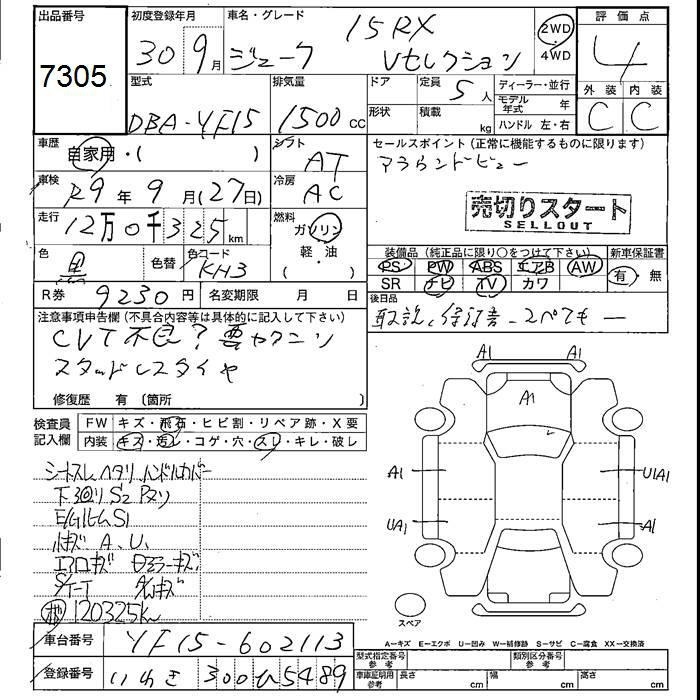 出品番号
7305
初度登録年月
30 9月
車名・グレード
ジューク 15RX
Vセレクション
2WD
4WD
評価点
4
外装 内装
C C
型式
DBA-YF15
排気量
1500cc
ドア
形状
定員
5人
積載
kg
ディーラー・並行
モデル年式 年
ハンドル 左・右
車歴
自家用・( )
シフト
AT
車検
R9年9月(27日)
冷房
AC
走行
12万0千325km
燃料
ガソリン
軽・油
( )
色
黒
色替
色コード
KH3
R券 9230円
名変期限 月 日
セールスポイント(正常に機能するものに限ります)
アラウンドビュー
売切りスタート
SELLOUT
装備品(純正品に限り○をつけて下さい)
新車保証書
PS PW ABS エアB AW
SR ナビ TV カワ
有・無
後日品
取説、保証書、スペアキー
注意事項申告欄(不具合内容等は具体的に記入して下さい)
CVT不良? 要カクニン
スタッドレスタイヤ
修復歴 有(箇所 )
検査員
記入欄
FW キズ・飛石・ヒビ割・リペア跡・X要
内装 キズ・汚レ・コゲ・穴・スレ・キレ・破レ
シートスレ ヘタリ ハンドルカバー
下回りS2 Pヌリ
A.U.
120325km
A1 A1
A1
A1
UA1
U1A1
A1
スペア
A=キズ E=エクボ U=凹み W=補修跡 S=サビ C=腐食 XX=交換済
車台番号 YF15-602113
登録番号 いわき 300 ひ 5489
型式指定番号
参考
類別区分番号
参考
車庫証明用
参考
長さ cm
幅 cm
高さ cm